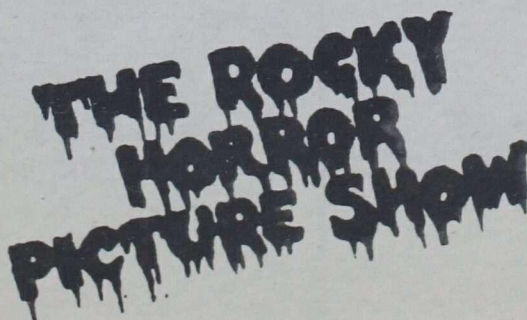 THE ROCKY
HORROR
PICTURE SHOW